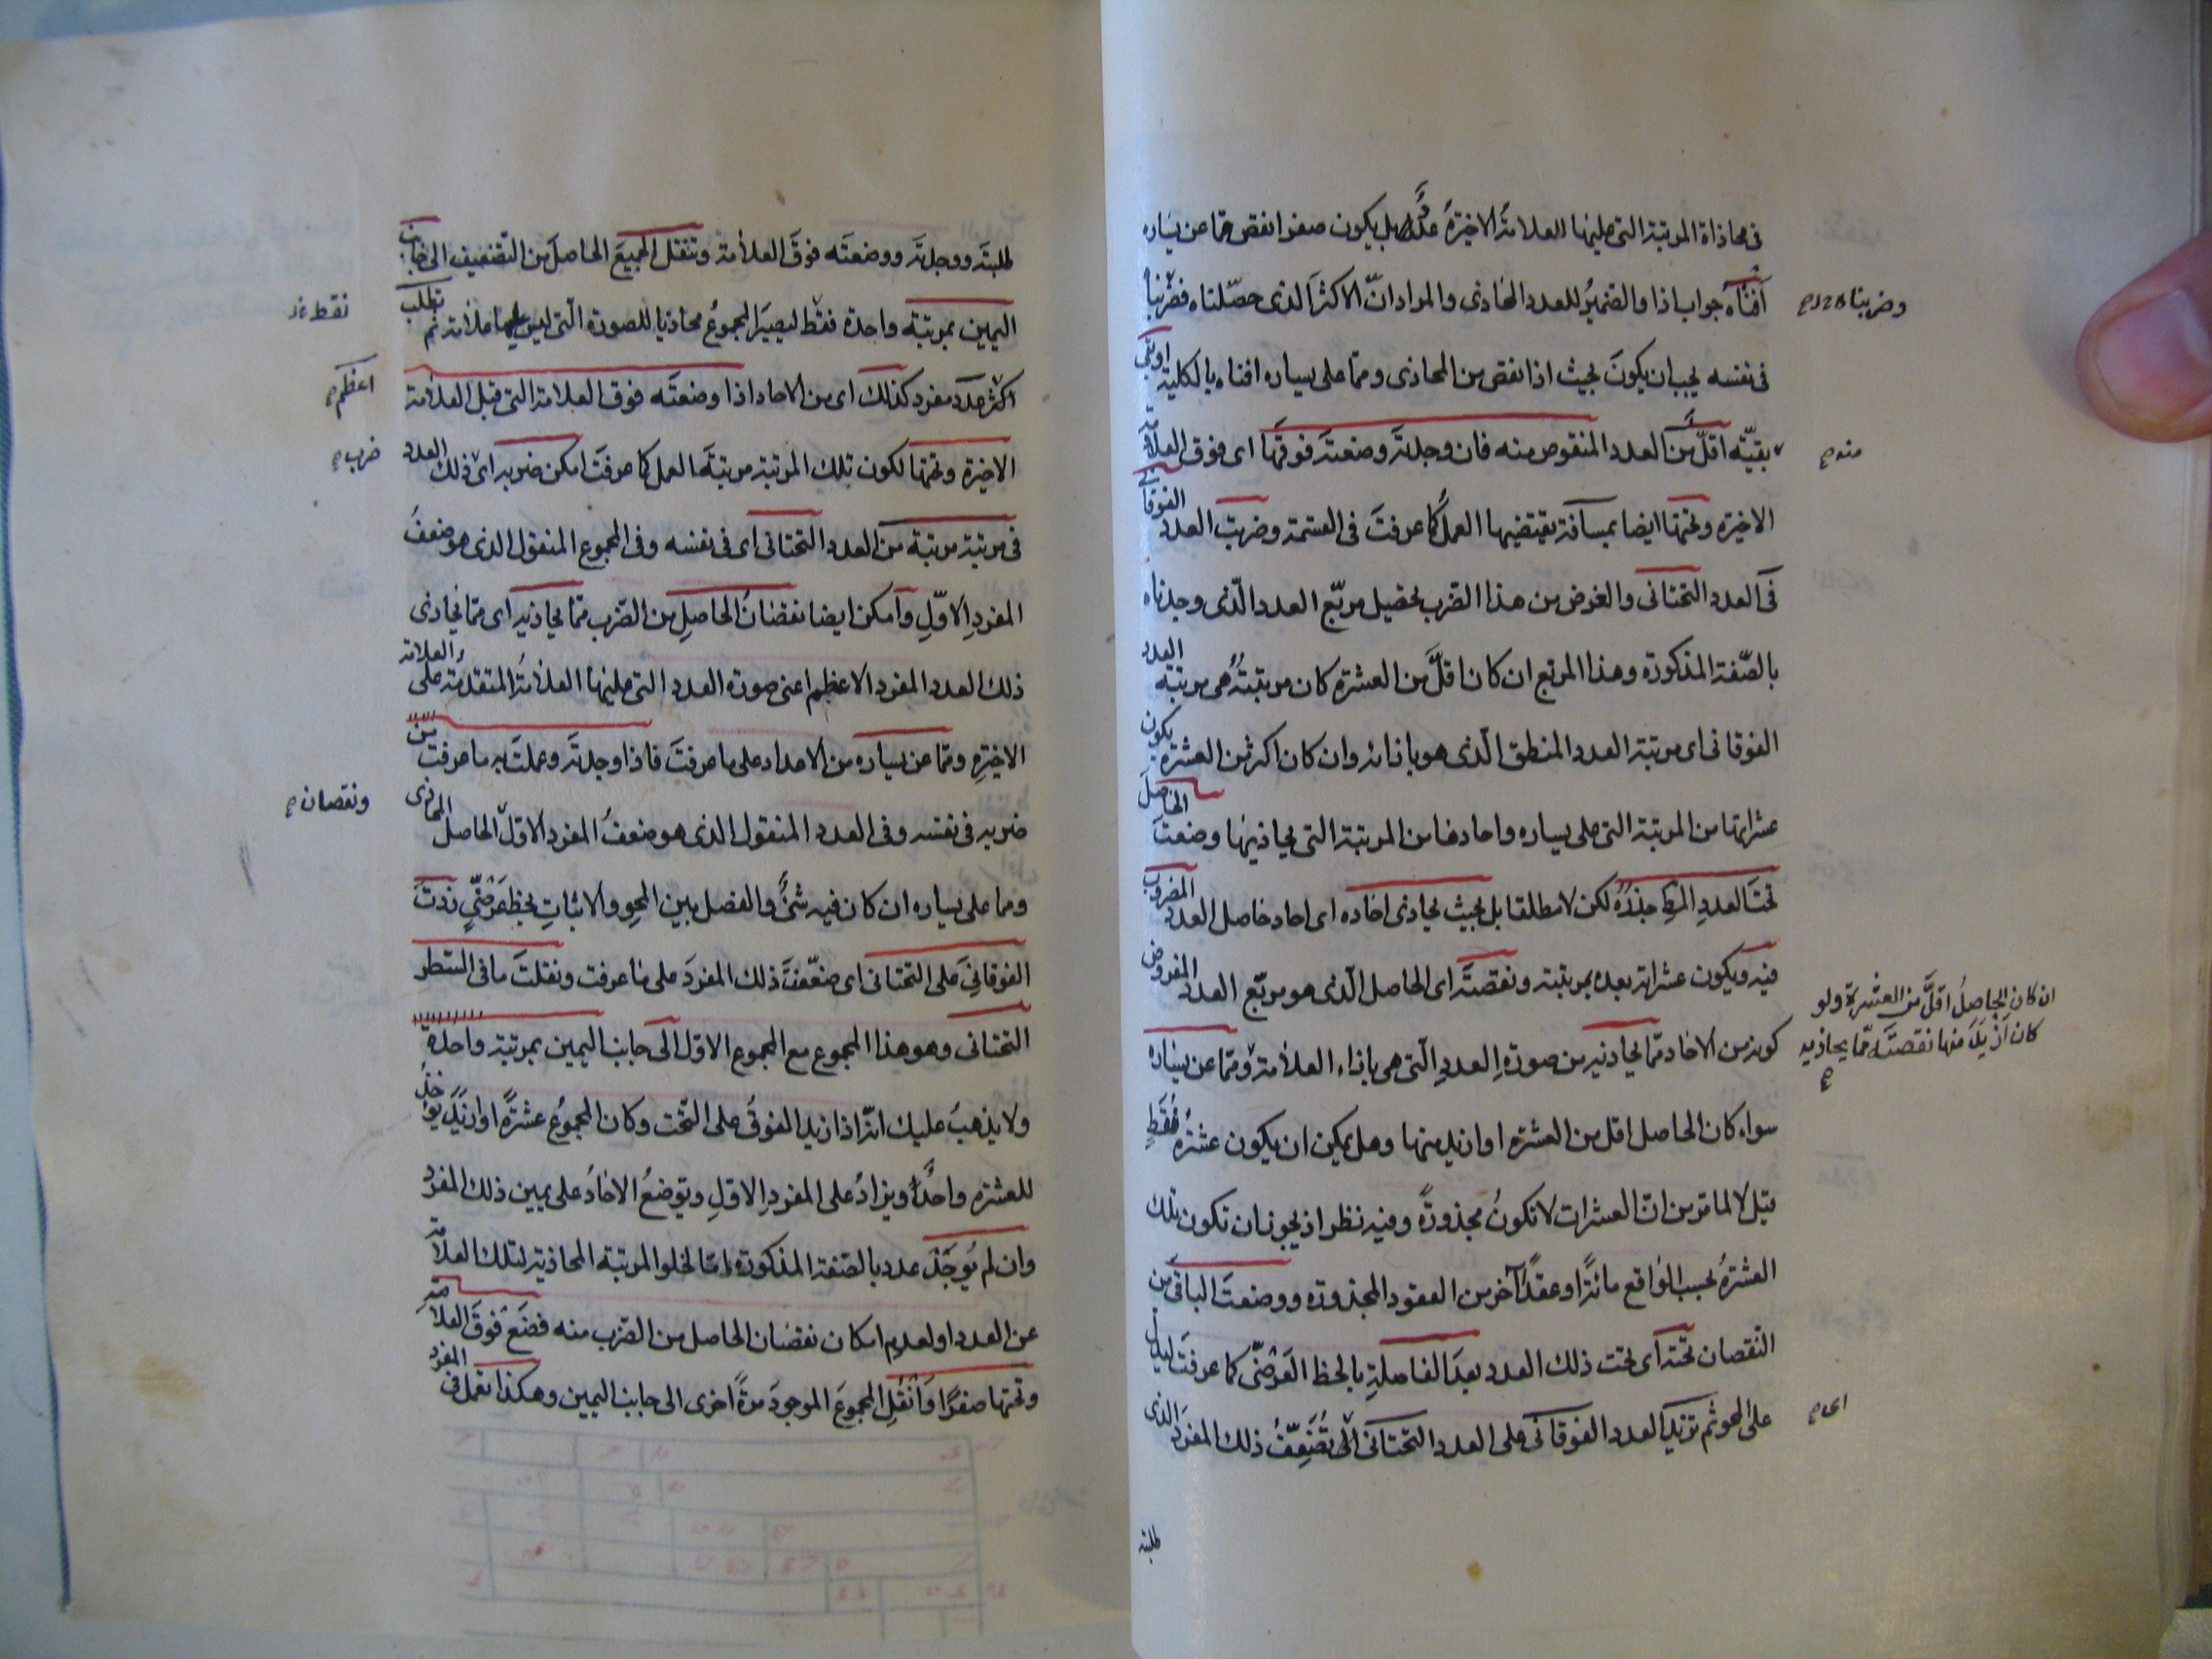 فى محاذاة المرتبة التى عليها العلامةُ الاخيرةُ عددٌ بل يكون صفرا نقص مما عن يساره
افناه جواب اذا والضميرُ للعدد المحاذى والمراد انّ الاكثرَ الذى حصّلناه فضربناه
وضربناه
فى نفسه يجب ان يكونَ بحيث اذا نقص من المحاذى ومما على يساره افناه بالكلية او بقى
بقيّة اقلّ من العدد المنقوص منه فان وجدتَه وضعتَه فوقَها اى فوق العلامة
منه
الاخيرة وتحتها ايضا بمسافة يقتضيها العملُ كما عرفتَ فى القسمة وضربت العدد الفوقانى
فى العدد التحتانى والغرض من هذا الضرب تحصيل مربّع العدد الّذى وجدناه
بالصّفة المذكورة وهذا المربع ان كان اقلَّ من العشرة كان مرتبتُه هى مرتبة العدد
الفوقانى اى مرتبة العدد المنطق الّذى هو بازائه وان كان اكثر من العشرة يكون
عشراتها من المرتبة التى على يساره واحادها من المرتبة التى يحاذيها وضعتَ الحاصلَ
تحتَ العددِ المط جذرُه لكن لا مطلقا بل بحيث يحاذى احاده اى احاد حاصل العدد المضروب
فيه ويكون عشراته بعده بمرتبة ونقصتَه اى الحاصل الّذى هو مربّع العدد المفروض
ان كان الحاصلُ اقلَّ من العشرة ولو
كان ازيدَ منها نقصتَه ممّا يحاذيه
كونه من الاحاد ممّا يحاذيه من صورةِ العددِ الّتى هى بازاء العلامة وممّا عن يساره
سواء كان الحاصل اقل من العشرة او ازيد منها وهل يمكن ان يكون عشرةً فقط
قيل لا لما مرّ من انّ العشرات لا تكونُ مجذورةً وفيه نظر اذ يجوز ان تكون تلك
العشرةُ بحسب الواقع مائةً او عقدًا آخر من العقود المجذورة ووضعتَ الباقىَ من
النّقصان تحته اى تحت ذلك العدد بعدَ الفاصلةِ بالخط العَرْضىّ كما عرفتَ ليدلّ
على المحو ثم تزيدُ العدد الفوقانى على العدد التحتانى اى تُضَعِّفُ ذلك المفردَ الذى
اى
طلبته
طلبتَه ووجدتَه ووضعتَه فوقَ العلامة وتنقل الجميعَ الحاصلَ من التّضعيف الى جانب
اليمين بمرتبة واحدة فقط ليصيرَ المجموعُ محاذيا للصورة الّتى ليس عليها علامة ثم تطلب
نقط
اكثرَ عددٍ مفردٍ كذلك اى من الاحاد اذا وضعتَه فوق العلامة التى قبل العلامة
اعظم
الاخيرة وتحتها لكون تلك المرتبة مرتبةَ العمل كما عرفتَ امكن ضربه اى ذلك العدد
ضرب
فى مرتبة مرتبة من العدد التحتانى اى فى نفسه وفى المجموع المنقول الذى هو ضعفُ
المفردِ الاوّلِ وامكن ايضا نقصانُ الحاصلِ من الضرب ممّا يحاذيه اى ممّا يحاذى
ذلك العدد المفرد الاعظم اعنى صورة العدد التى عليها العلامةُ المتقدمة على العلامة
الاخيرةِ وممّا عن يساره من الاعداد على ما عرفتَ فاذا وجدتَه وعملتَ به ما عرفت من
ضربه فى نفسه وفى العدد المنقول الذى هو ضعفُ المفرد الاول الحاصل المحاذى
ونقصان
ومما على يساره ان كان فيه شئٌ والفصل بين المحوِ والاثباتِ بخطٍ عَرْضىٍّ زدتَ
الفوقانىَ على التحتانى اى ضعّفتَ ذلك المفردَ على ما عرفت ونقلتَ ما فى السّطر
التحتانى وهو هذا المجموع مع المجموع الاول الى جانب اليمين بمرتبة واحدة
ولا يذهب عليك انّه اذا زيد الفوقُ على التّحت وكان المجموع عشرةً او ازيَدَ يؤخذُ
للعشرة واحدًا ويزادُ على المفردِ الاولِ ويوضعُ الاحادُ على يمين ذلك المفرد
وان لم يُوجَدْ عدد بالصّفة المذكورة امّا لخلو المرتبة المحاذية لتلك العلامة
عن العدد او لعدم امكان نقصان الحاصل من الضرب منه فضَع فوقَ العلامة
وتحتها صفرًا وَانْقُلِ المجموعَ الموجودَ مرةً اخرى الى جانب اليمين وهكذا تعمل فى المفرد